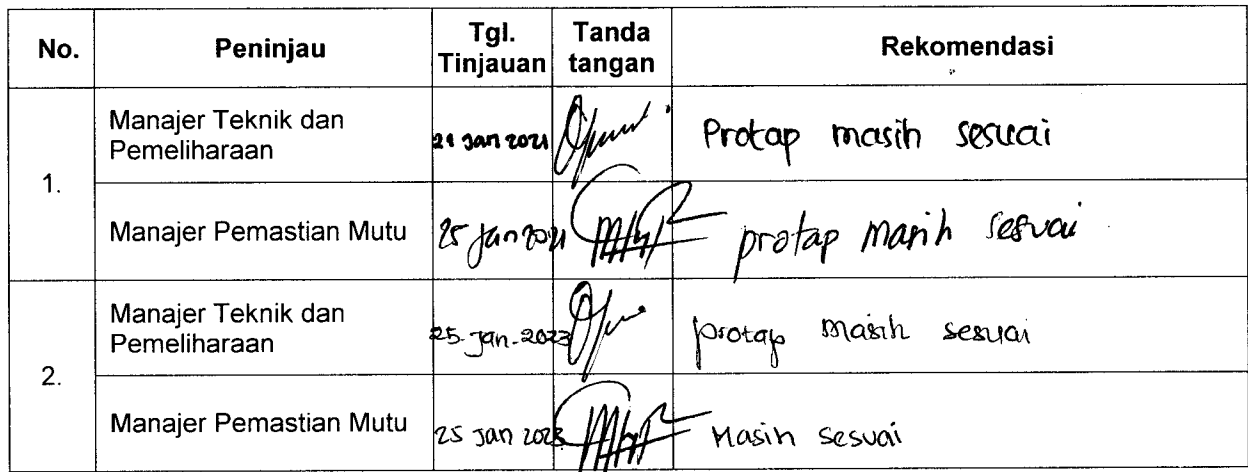 No. Peninjau Tgl. Tinjauan Tanda tangan Rekomendasi
1. Manajer Teknik dan Pemeliharaan 21 Jan 2021 Protap masih sesuai
Manajer Pemastian Mutu 25 Jan 2021 protap masih sesuai
2. Manajer Teknik dan Pemeliharaan 25-Jan-2023 protap masih sesuai
Manajer Pemastian Mutu 25 Jan 2023 Masih sesuai